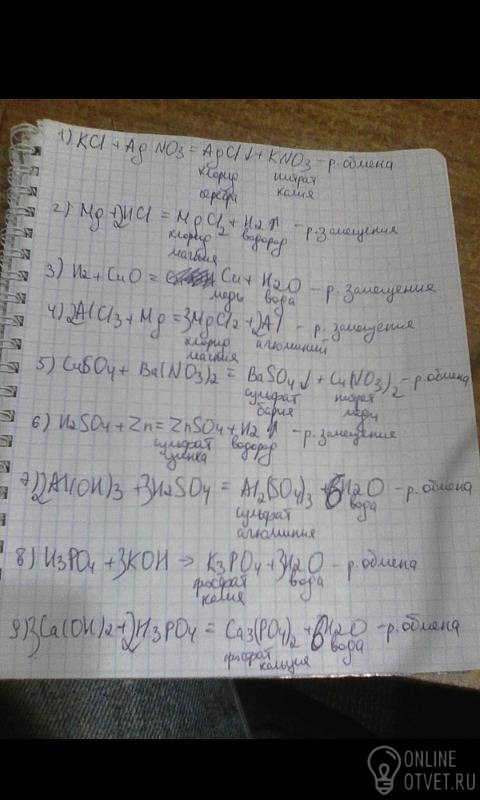 1) KCl + AgNO3 = AgCl↓ + KNO3 - р. обмена
хлорид нитрат
серебра калия
2) Mg + 2HCl = MgCl2 + H2↑ - р. замещения
хлорид водород
магния
3) H2 + CuO = Cu + H2O - р. замещения
медь вода
4) 2AlCl3 + Mg = 3MgCl2 + 2Al - р. замещения
хлорид алюминий
магния
5) CuSO4 + Ba(NO3)2 = BaSO4↓ + Cu(NO3)2 - р. обмена
сульфат нитрат
бария меди
6) H2SO4 + Zn = ZnSO4 + H2↑ - р. замещения
сульфат водород
цинка
7) 2Al(OH)3 + 3H2SO4 = Al2(SO4)3 + 6H2O - р. обмена
сульфат вода
алюминия
8) H3PO4 + 3KOH → K3PO4 + 3H2O - р. обмена
фосфат вода
калия
9) 3Ca(OH)2 + 2H3PO4 = Ca3(PO4)2 + 6H2O - р. обмена
фосфат вода
кальция
ONLINE
OTVET.RU